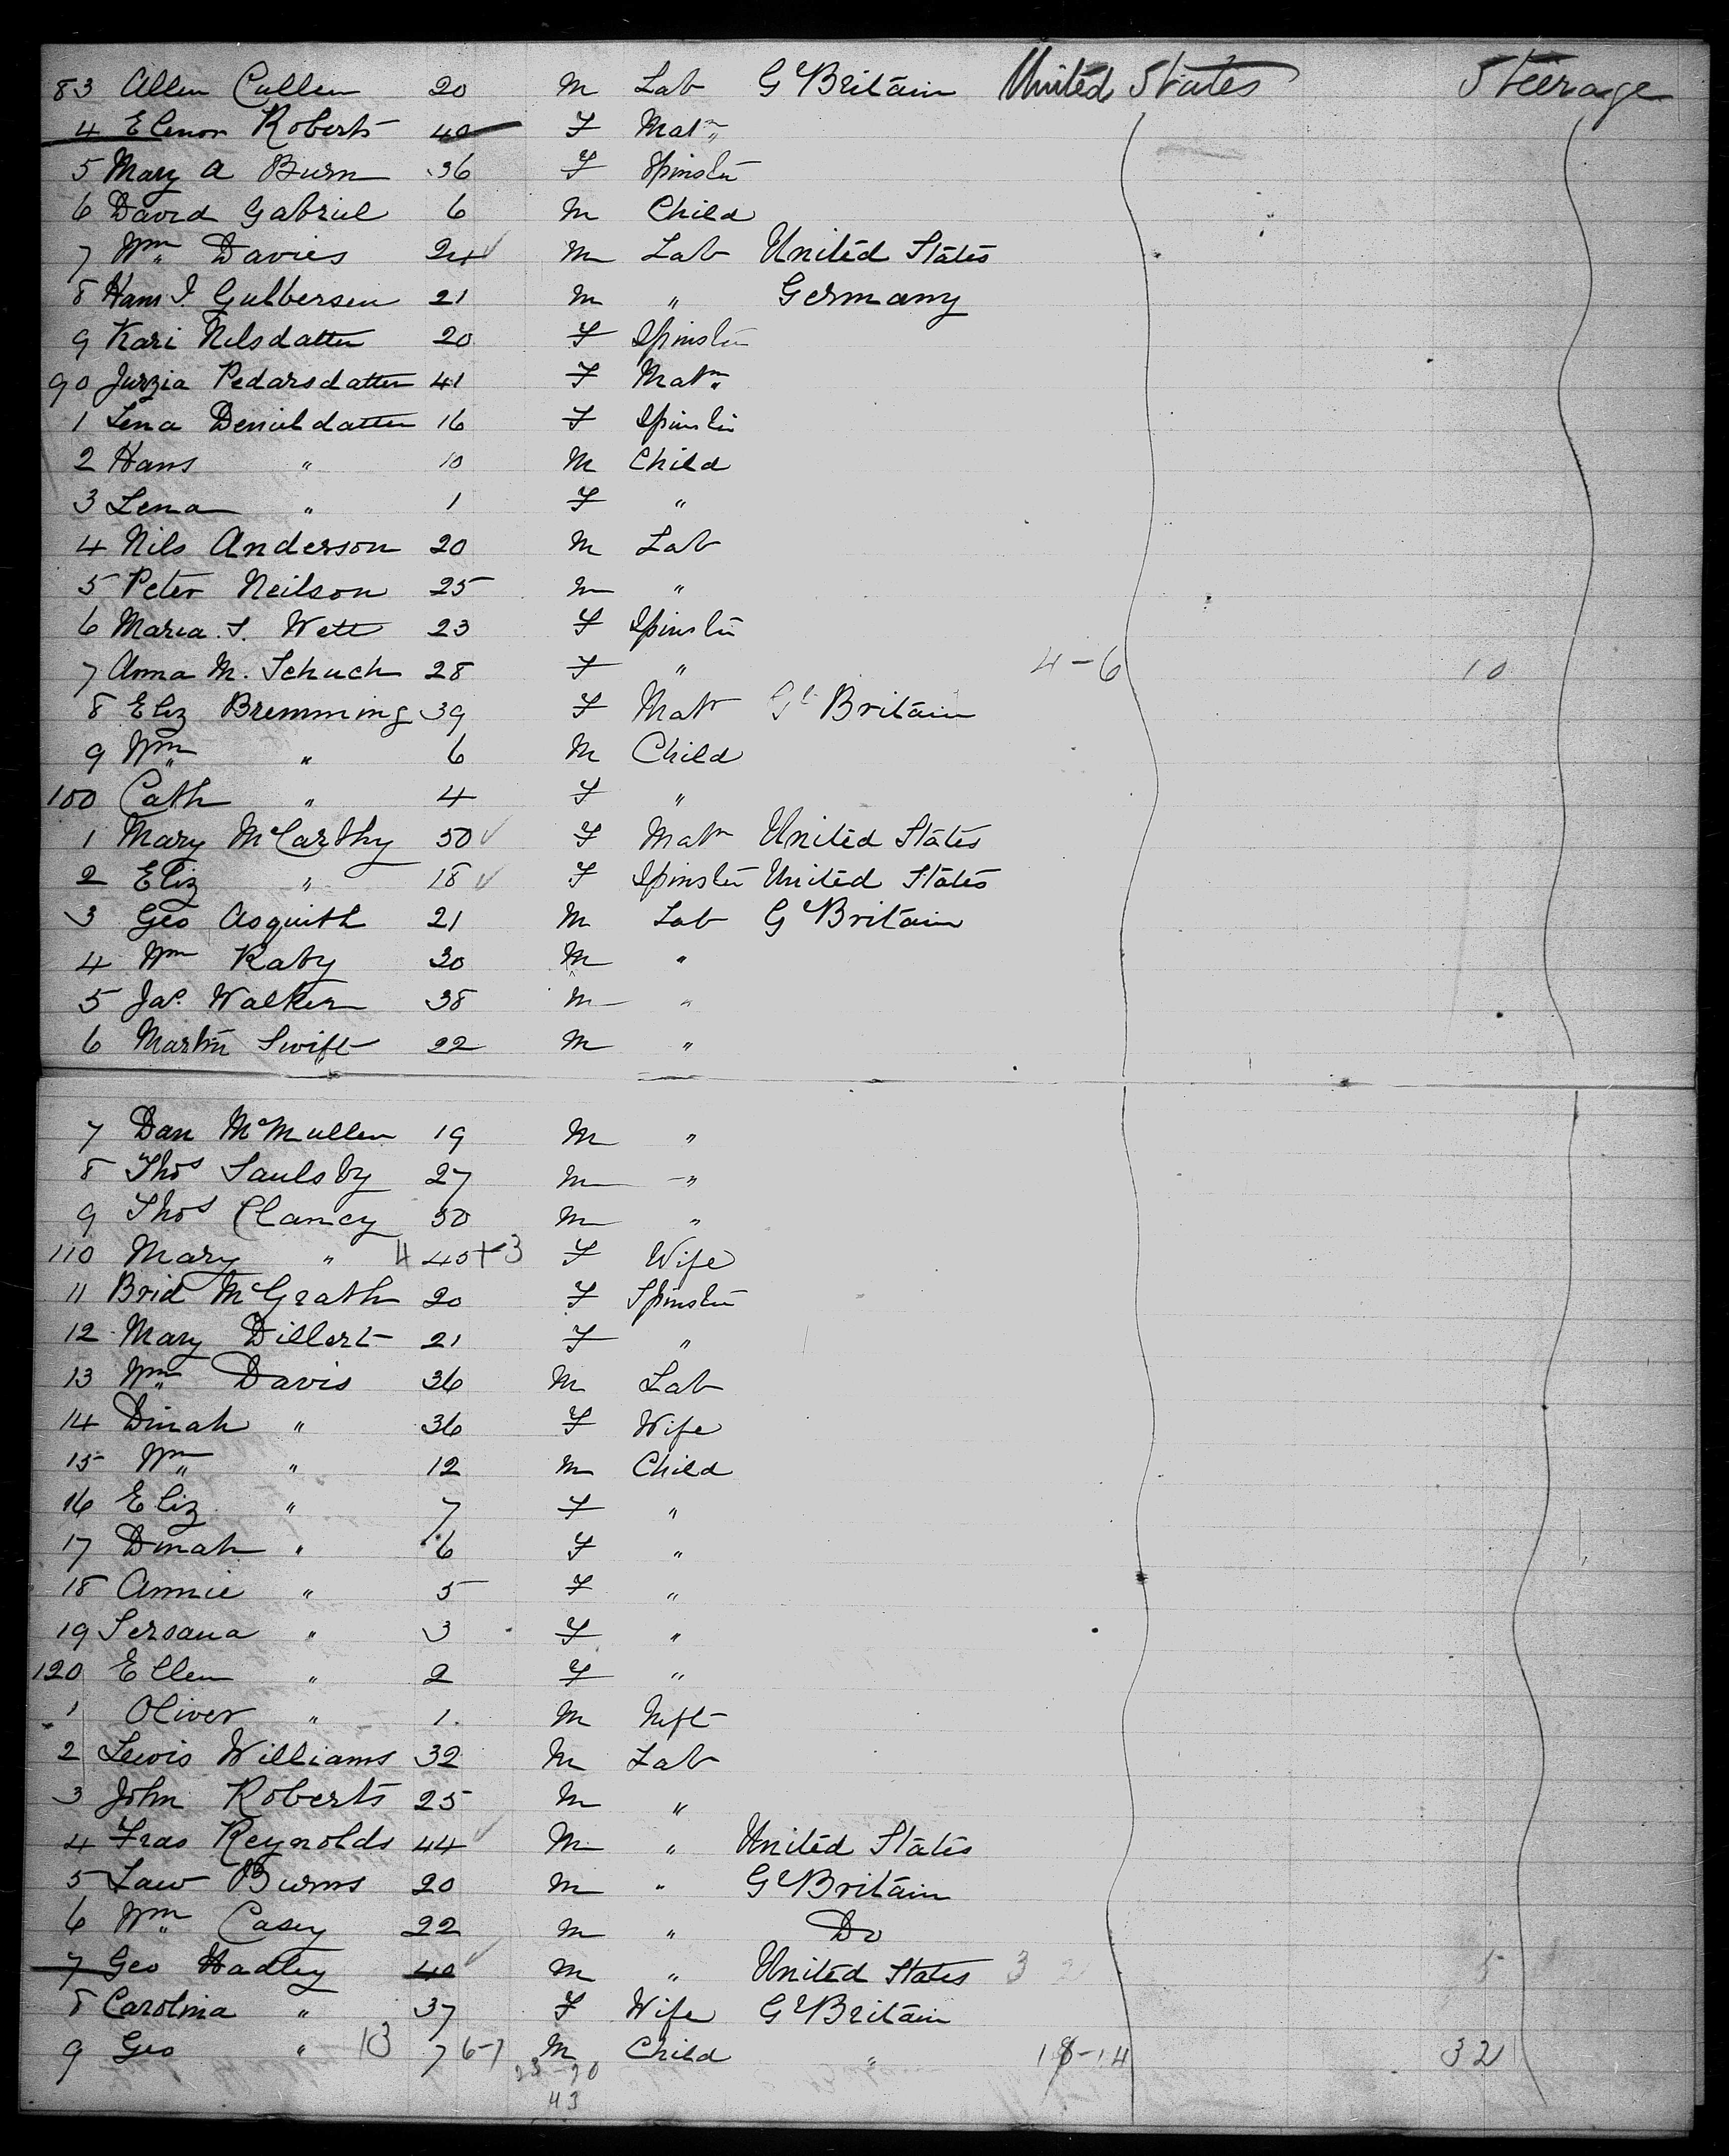 83 Allen Cullen 20 M Lab Gt Britain United States Steerage
4 Elenor Roberts 40 F Matn
5 Mary A Burn 36 F Spinster
6 David Gabriel 6 M Child
7 Wm Davies 24 M Lab United States
8 Hans I. Gulbersen 21 M " Germany
9 Kari Nilsdatter 20 F Spinster
90 Jurzia Pedarsdatter 41 F Matn
1 Lena Denieldatter 16 F Spinster
2 Hans " 10 M Child
3 Lena " 1 F "
4 Nils Anderson 20 M Lab
5 Peter Neilson 25 M "
6 Maria S. Wett 23 F Spinster
7 Anna M. Schuch 28 F " 4-6 10
8 Eliz Bremming 39 F Matn Gt Britain
9 Wm " 6 M Child
100 Cath " 4 F "
1 Mary McCarthy 50 F Matn United States
2 Eliz " 18 F Spinster United States
3 Geo Asquith 21 M Lab Gt Britain
4 Wm Raby 30 M "
5 Jas. Walker 38 M "
6 Martin Swift 22 M "
7 Dan McMullen 19 M "
8 Thos Saulsby 27 M "
9 Thos Clancy 50 M "
110 Mary " 4 45+3 F Wife
11 Brid McGrath 20 F Spinster
12 Mary Dillert 21 F "
13 Wm Davis 36 M Lab
14 Dinah " 36 F Wife
15 Wm " 12 M Child
16 Eliz " 7 F "
17 Dinah " 6 F "
18 Annie " 5 F "
19 Sersana " 3 F "
120 Ellen " 2 F "
1 Oliver " 1 M Inft
2 Lewis Williams 32 M Lab
3 John Roberts 25 M "
4 Fras Reynolds 44 M " United States
5 Law Burns 20 M " Gt Britain
6 Wm Casey 22 M " Do
7 Geo Hadley 40 M " United States 3 2 5
8 Carolina " 37 F Wife Gt Britain
9 Geo " 13 7 6-7 M Child " 18-14 32
23-20
43